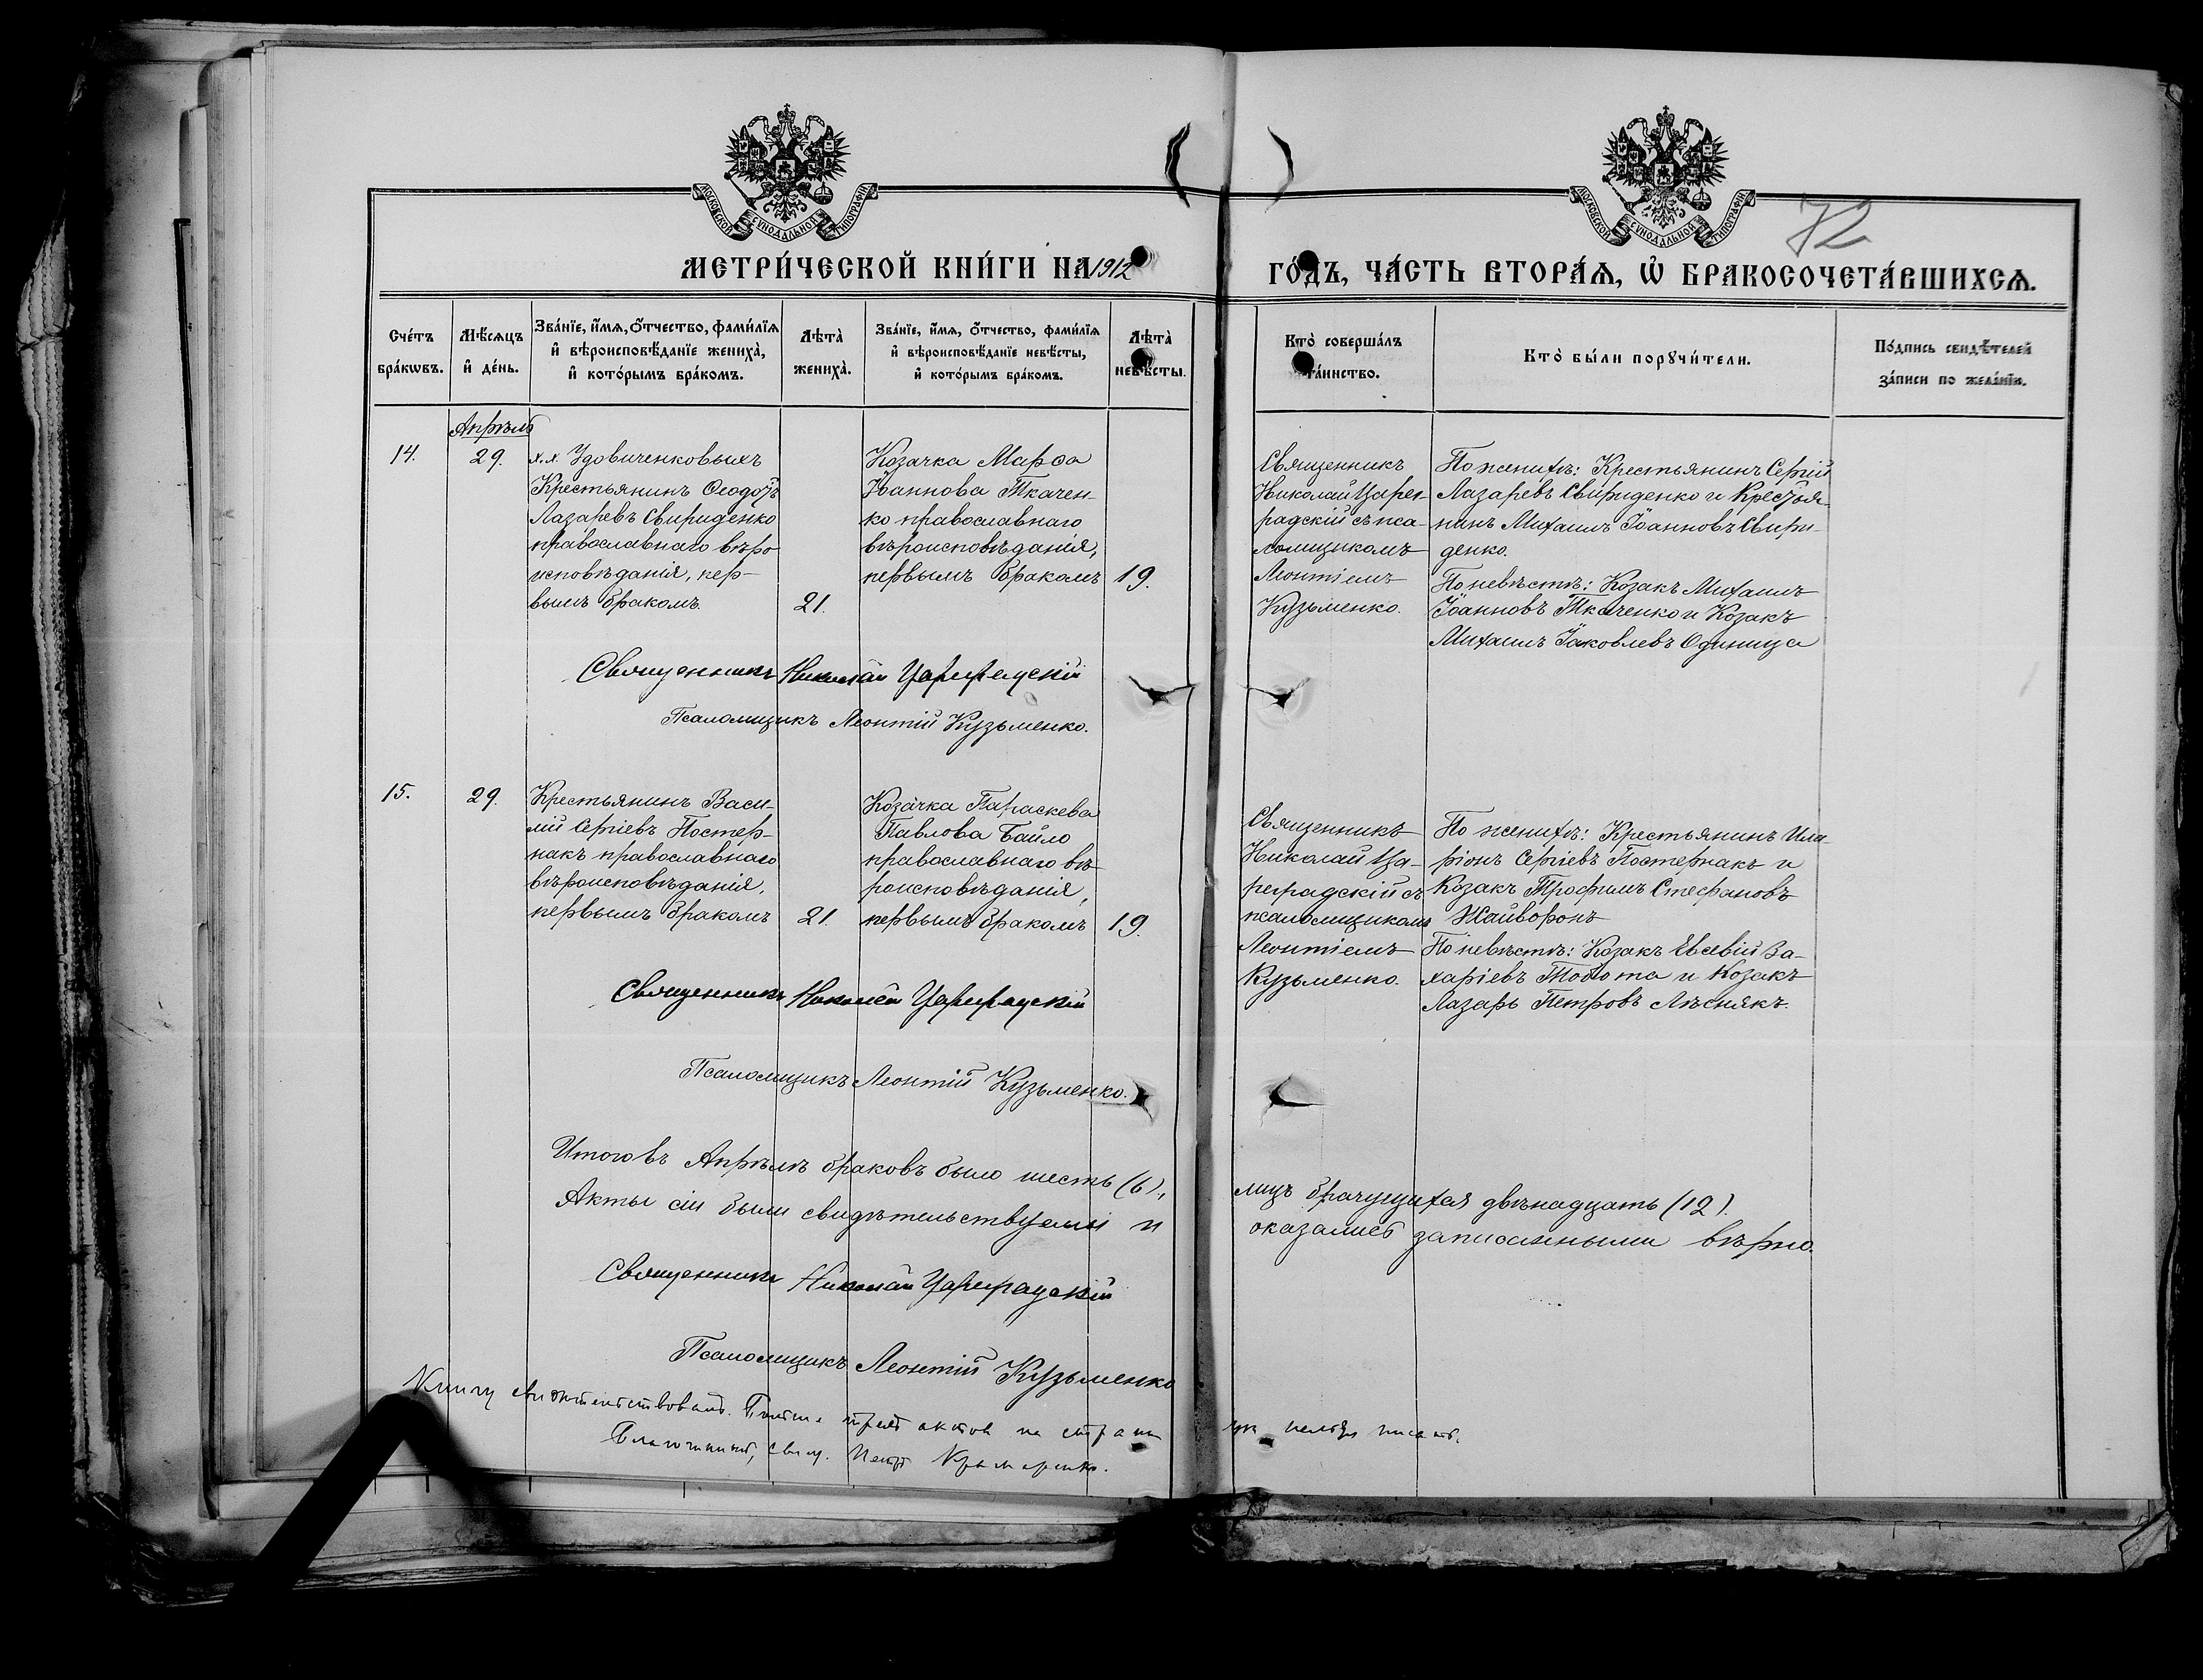 МОСКОВСКОЙ СѴНОДАЛЬНОЙ ТИПОГРАФІИ
МОСКОВСКОЙ СѴНОДАЛЬНОЙ ТИПОГРАФІИ
72
МЕТРИ́ЧЕСКОЙ КНИ́ГИ НА 1912 ГО́ДЪ, ЧА́СТЬ ВТОРА́Ѧ, Ѡ БРАКОСОЧЕТА́ВШИХСѦ.
Сче́тъ бра́кѡвъ.
Мѣ́сѧцъ и҆ де́нь.
Зва́нїе, и҆́мѧ, ѻ҆́тчество, фами́лїѧ и҆ вѣроисповѣ́данїе жениха̀, и҆ кото́рымъ бра́комъ.
Лѣта̀ жениха̀.
Зва́нїе, и҆́мѧ, ѻ҆́тчество, фами́лїѧ и҆ вѣроисповѣ́данїе невѣ́сты, и҆ кото́рымъ бра́комъ.
Лѣта̀ невѣ́сты.
Кто̀ соверша́лъ та́инство.
Кто̀ бы́ли порꙋчи́тели.
По́дпись свидѣ́телей за́писи по жела́нїю.
Апрѣль
14.
29.
х.х. Удовиченковыхъ
Крестьянинъ Ѳеодотъ
Лазаревъ Свириденко
православнаго вѣро
исповѣданія, пер-
вымъ бракомъ.
21.
Козачка Марѳа
Іоаннова Ткачен-
ко православнаго
вѣроисповѣданія,
первымъ бракомъ
19.
Священникъ
Николай Царе-
градскій съ пса-
ломщикомъ
Леонтіемъ
Кузьменко.
По женихѣ: Крестьянинъ Сергій
Лазаревъ Свириденко и Крестья-
нинъ Михаилъ Іоанновъ Свири-
денко.
По невѣстѣ: Козакъ Михаилъ
Іоанновъ Ткаченко и Козакъ
Михаилъ Іаковлевъ Одиница
Священникъ Николай Цареградскій
Псаломщикъ Леонтій Кузьменко.
15.
29.
Крестьянинъ Васи-
лій Сергіевъ Постер-
накъ православнаго
вѣроисповѣданія,
первымъ бракомъ
21.
Козачка Параскева
Павлова Байло
православнаго вѣ-
роисповѣданія,
первымъ бракомъ
19.
Священникъ
Николай Ца-
реградскій съ
псаломщикомъ
Леонтіемъ
Кузьменко.
По женихѣ: Крестьянинъ Ила-
ріонъ Сергіевъ Постернакъ и
Козакъ Трофимъ Стефановъ
Жайворонъ
По невѣстѣ: Козакъ Евсевій За-
харіевъ и Козакъ
Лазарь Петровъ Лѣснякъ.
Священникъ Николай Цареградскій
Псаломщикъ Леонтій Кузьменко.
Итого въ Апрѣлѣ браковъ было шесть (6), лицъ брачущихся двѣнадцать (12).
Акты сіи были свидѣтельствуемы и оказались записанными вѣрно.
Священникъ Николай Цареградскій
Псаломщикъ Леонтій Кузьменко
Книгу свидѣтельствовалъ. актов на страни цѣ нельзя писать.
Благочинный, свящ. Петръ